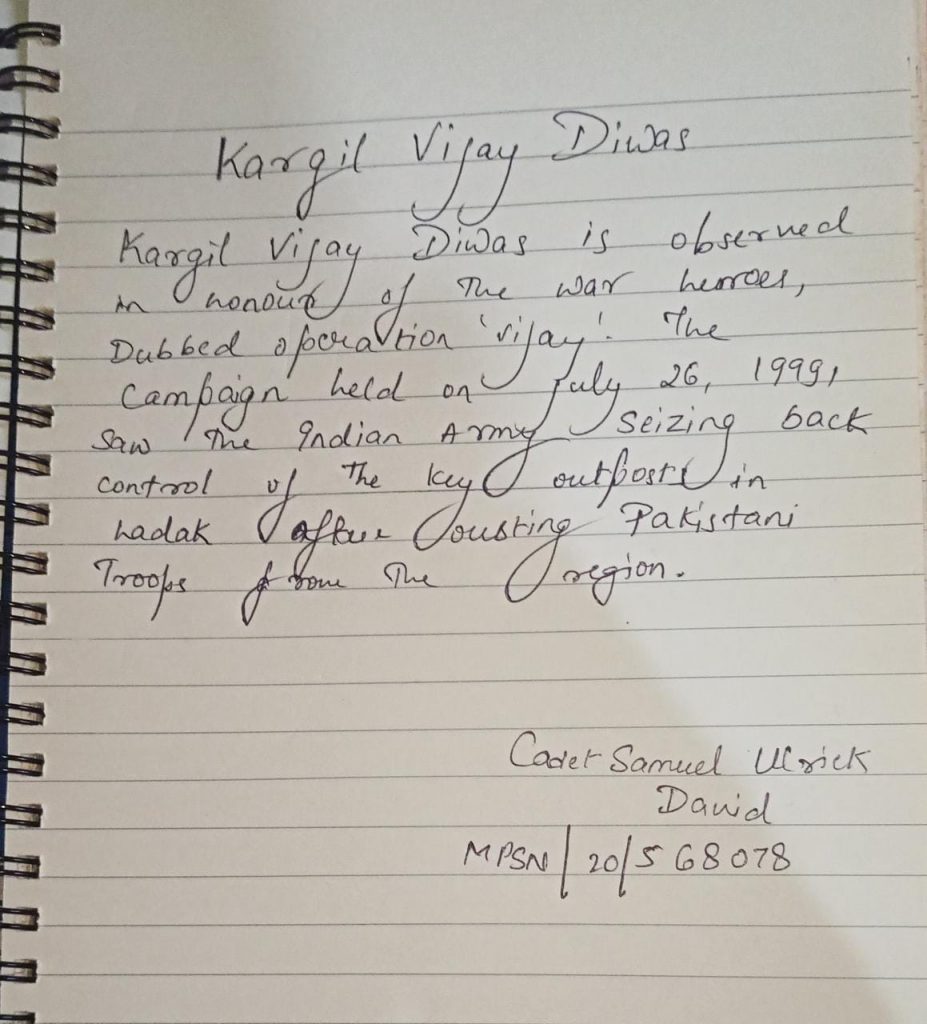 Kargil Vijay Diwas
Kargil Vijay Diwas is observed
in honour of The war heroes,
Dubbed operation 'vijay'. The
Campaign held on July 26, 1999,
Saw The Indian Army Seizing back
control of The key outposts in
Ladak after ousting Pakistani
Troops from The region.
Cadet Samuel Ulrick
David
MPSN/20/568078